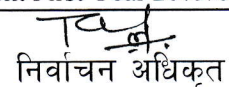 निर्वाचन अधिकृत